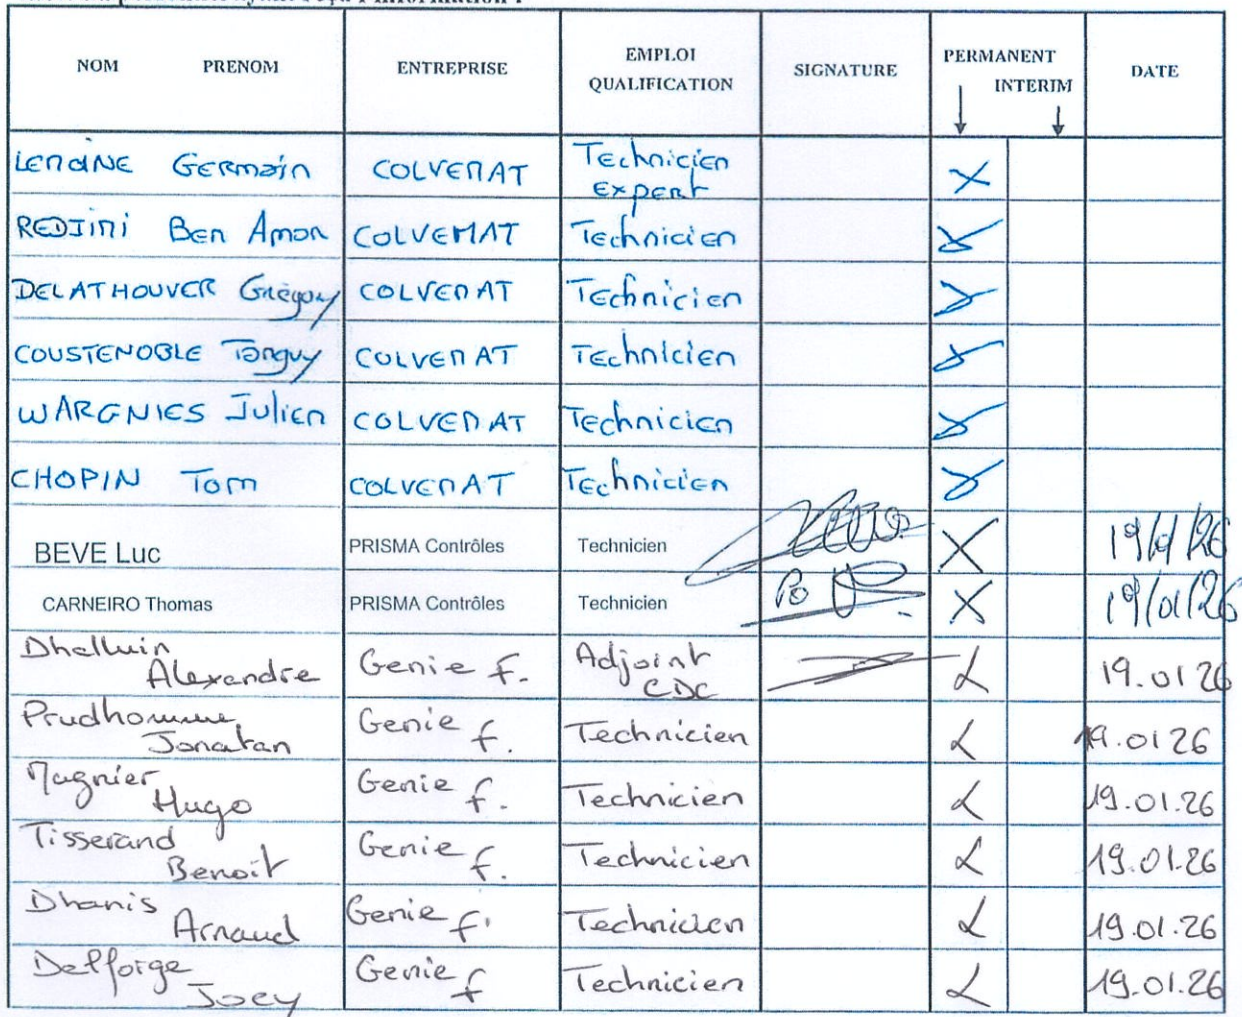 NOM PRENOM ENTREPRISE EMPLOI QUALIFICATION SIGNATURE PERMANENT INTERIM DATE
LEMOINE Germain COLVEMAT Technicien Expert X
REDJIMI Ben Amon COLVEMAT Technicien X
DELATHOUVER Grégory COLVEMAT Technicien X
COUSTENOBLE Tanguy COLVEMAT Technicien X
WARGNIES Julien COLVEMAT Technicien X
CHOPIN Tom COLVEMAT Technicien X
BEVE Luc PRISMA Contrôles Technicien X 19/01/26
CARNEIRO Thomas PRISMA Contrôles Technicien Po X 19/01/26
Dhelluin Alexandre Genie f. Adjoint CDC X 19.01 26
Prudhomme Jonatan Genie f. Technicien X 19.01 26
Magnier Hugo Genie f. Technicien X 19.01.26
Tisserand Benoit Genie f. Technicien X 19.01.26
Dhanis Arnaud Genie f. Technicien X 19.01.26
Delforge Joey Genie f Technicien X 19.01.26